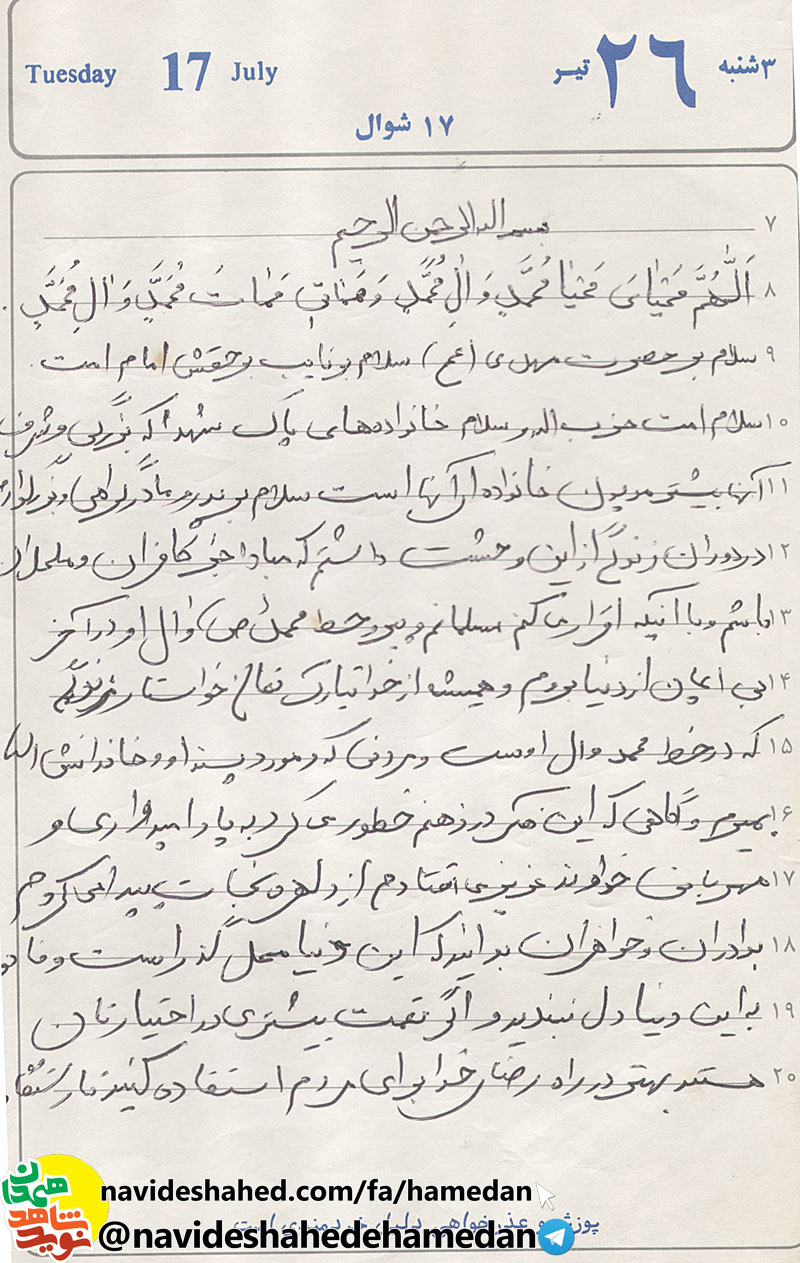 ۳شنبه ۲۶ تیر
Tuesday 17 July
۱۷ شوال
۷ بسم الله الرحمن الرحیم
۸ اَللّهُمَّ مَحیایَ مَحیا مُحَمَّدٍ وَ الِ مُحَمَّدٍ وَ مَماتی مَماتَ مُحَمَّدٍ وَ الِ مُحَمَّدٍ
۹ سلام بر حضرت مهدی (عج) سلام بر نایب بر حقش امام امت
۱۰ سلام امت حزب اله و سلام خانواده‌های پاک شهدا که بزرگی و شرف
۱۱ آنها بیشتر مدیون خانواده آنها است سلام بر پدر و مادر گرامی و بزرگوارم
۱۲ در دوران زندگی از این وحشت داشتم که مبادا جزء کافران و ملحدان
۱۳ باشم و با اینکه اقرار می کنم مسلمانم و پیرو خط محمد (ص) و ال او در آخر
۱۴ بی ایمان از دنیا بروم و همیشه از خدا تبارک تعالی خواستار زندگی
۱۵ که در خط محمد وال اوست و مردنی که مورد پسند او و خاندانش
۱۶ بمیرم و گاهی که این فکر در ذهنم خطور می کرد به یاد امیدواری و
۱۷ مهربانی خداوند عزیز می افتادم از دلهره نجات پیدا می کردم
۱۸ برادران و خواهران بدانید که این دنیا محل گذر است و
۱۹ به این دنیا دل نبندید و اگر نعمت بیشتری در اختیارتان
۲۰ هستند بهتر در راه رضای خدا برای مردم استفاده کنید
پوزش و عذرخواهی دلیل خردمندی است
نوید شاهد همدان
navideshahed.com/fa/hamedan
@navideshahedehamedan